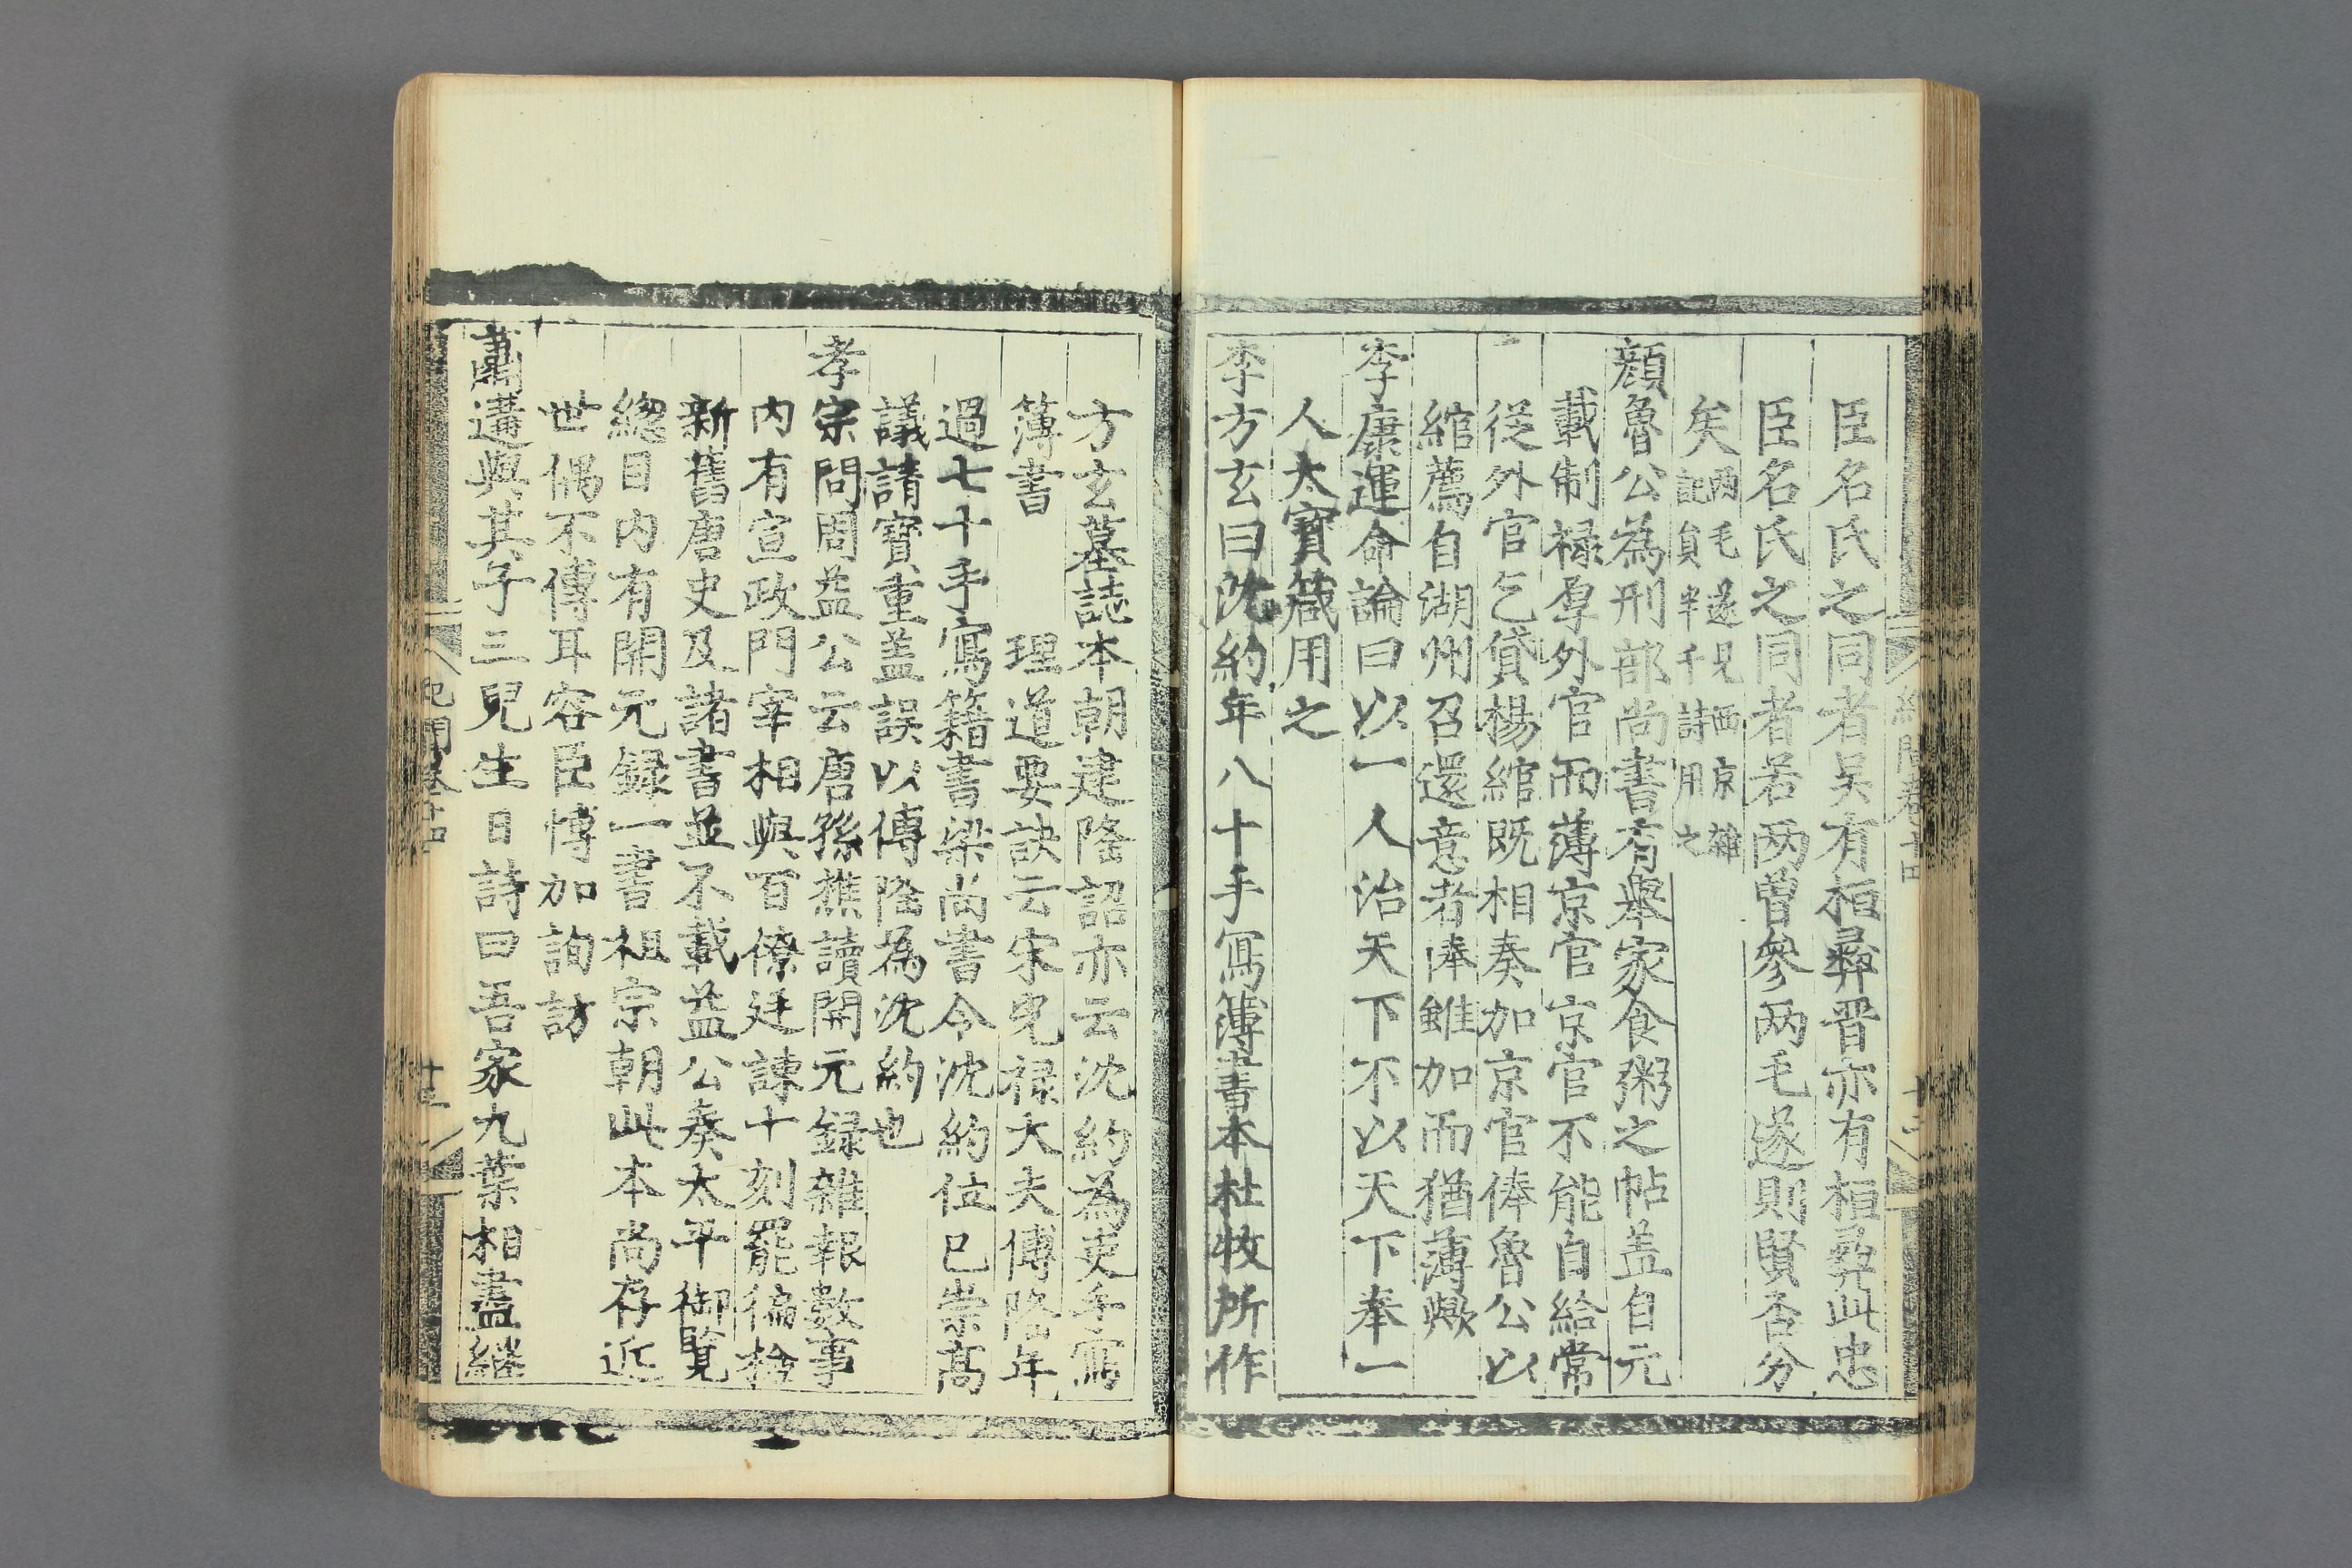 臣名氏之同者吴有桓彝晋亦有桓彝此忠
臣名氏之同者若两曾參两毛遂則賢否分
矣两毛遂見西京雜記貟半千詩用之
顔魯公為刑部尚書有舉家食粥之帖盖自元
載制禄厚外官而薄京官京官不能自給常
從外官乞貸楊綰既相奏加京官俸魯公以
綰薦自湖州召還意者俸雖加而猶薄歟
李康運命論曰以一人治天下不以天下奉一
人太寳箴用之
李方玄曰沈約年八十手冩簿書本杜牧所作
方玄墓誌本朝建隆詔亦云沈約為吏手寫
簿書 理道要訣云宋光禄大夫傅隆年
過七十手寫籍書梁尚書令沈約位已崇髙
議請寳重盖誤以傅隆為沈約也
孝宗問周益公云唐孫樵讀開元録雜報數事
内有宣政門宰相與百僚廷諍十刻罷徧檢
新舊唐史及諸書並不載益公奏太平御覧
緫目内有開元録一書祖宗朝此本尚存近
世偶不傳耳容臣愽加詢訪
蕭遘與其子三兒生日詩曰吾家九葉相盡繼
紀聞卷十四
十三